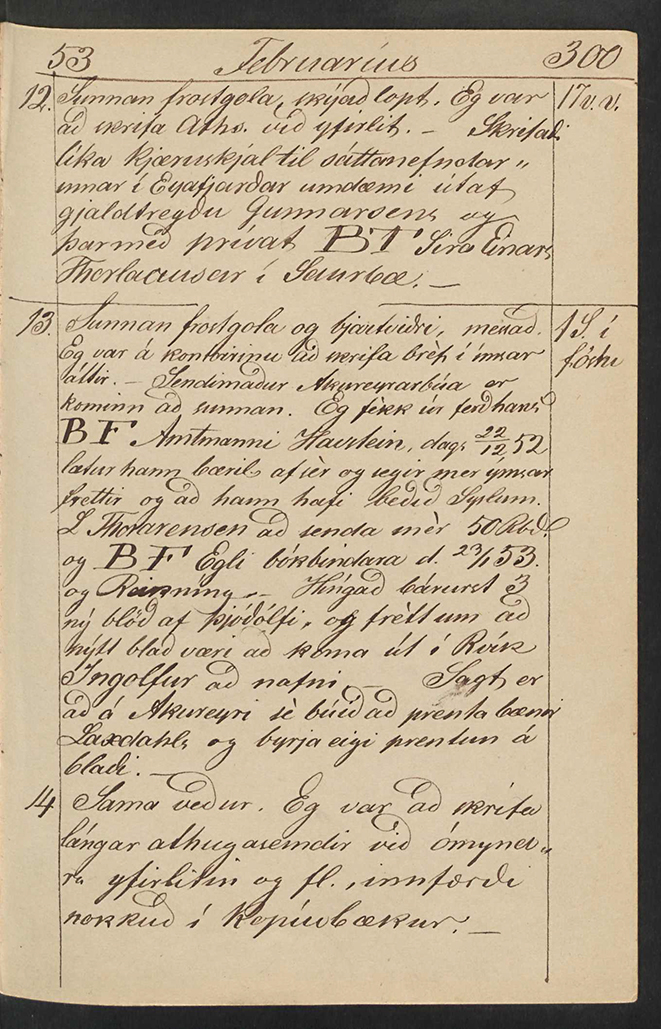 53 Februarius 300
12. Sunnan frostgola, skýad lopt. Eg var 17 v. v.
ad skrifa Aths. vid yfirlit. – Skrifadi
lika kjæruskjal til sáttanefndar„
innar í Eyafjardar umdæmi útaf
gjaldtregdu Gunnarsens og
þarmed privat BT Sira Einars
Thorlaciusar í Saurbæ. –
13. Sunnan frostgola og bjartvidri, 1 S. í
Eg var á kontórinu ad skrifa bréf í imsar fóstu
áttir. – Sendimadur Akureyrarbúa er
kominn ad sunnan. Eg fèkk úr ferd hans
BF Amtmanni Havstein, dags 22/12 52
lætur hann bæril. af sèr og segir mer ýmsar
frettir og ad hann hafi bedid Syslum.
L Thorarensen ad senda mèr 50 Rbd.
og BF Egli bókbindara d. 23/1 53.
og Reikning. – Híngad bárust 3
ný blöd af þjódólfi, og frètt um ad
nýtt blad væri ad koma út í Rvík
Ingolfur ad nafni – Sagt er
ad á Akureyri sè búid ad prenta bænir
Laxdahls og byrja eigi prentun á
bladi. –
14 Sama vedur. Eg var ad skrifa
lángar athugasemdir vid ómynd„
ra yfirlitin og fl., innfærdi
nokkud í Kopíubækur. –